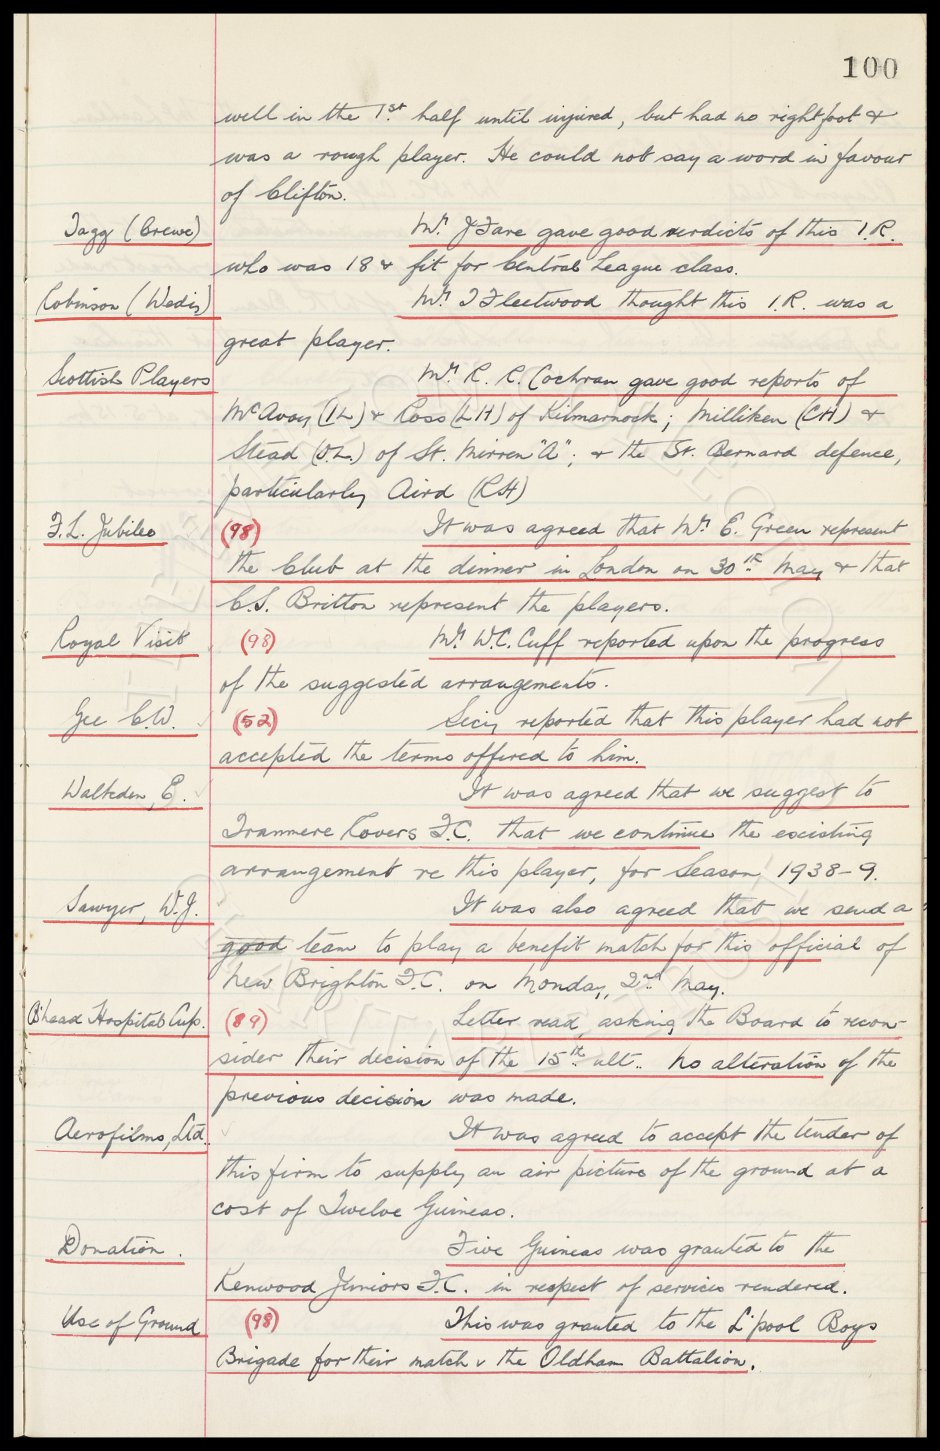 100
well in the 1st half until injured, but had no right foot &
was a rough player. He could not say a word in favour
of Clifton.
Tagg (Crewe) Mr. J Fare gave good verdicts of this I.R.
who was 18 & fit for Central League class.
Robinson (Weds) Mr. T Fleetwood thought this I.R. was a
great player.
Scottish Players Mr. R. R. Cochran gave good reports of
McAvoy (IL) & Ross (LH) of Kilmarnock; Milliken (CH) &
Stead (O.L.) of St. Mirren "A"; & the St. Bernard defence,
particularly Aird (RH)
F.L. Jubilee (98) It was agreed that Mr. E. Green represent
the Club at the dinner in London on 30th May & that
C.S. Britton represent the players.
Royal Visit (98) Mr. W.C. Cuff reported upon the progress
of the suggested arrangements.
Gee C.W. (52) Secy reported that this player had not
accepted the terms offered to him.
Walkden, E. It was agreed that we suggest to
Tranmere Rovers F.C. that we continue the existing
arrangement re this player, for Season 1938-9.
Sawyer, W.J. It was also agreed that we send a
good team to play a benefit match for this official of
New Brighton F.C. on Monday, 2nd May.
B'head Hospital Cup. (89) Letter read, asking the Board to recon-
sider their decision of the 15th ult.. No alteration of the
previous decision was made.
Aerofilms, Ltd. It was agreed to accept the tender of
this firm to supply an air picture of the ground at a
cost of Twelve Guineas.
Donation. Five Guineas was granted to the
Kenwood Juniors F.C. in respect of services rendered.
Use of Ground (98) This was granted to the L'pool Boys
Brigade for their match v the Oldham Battalion.